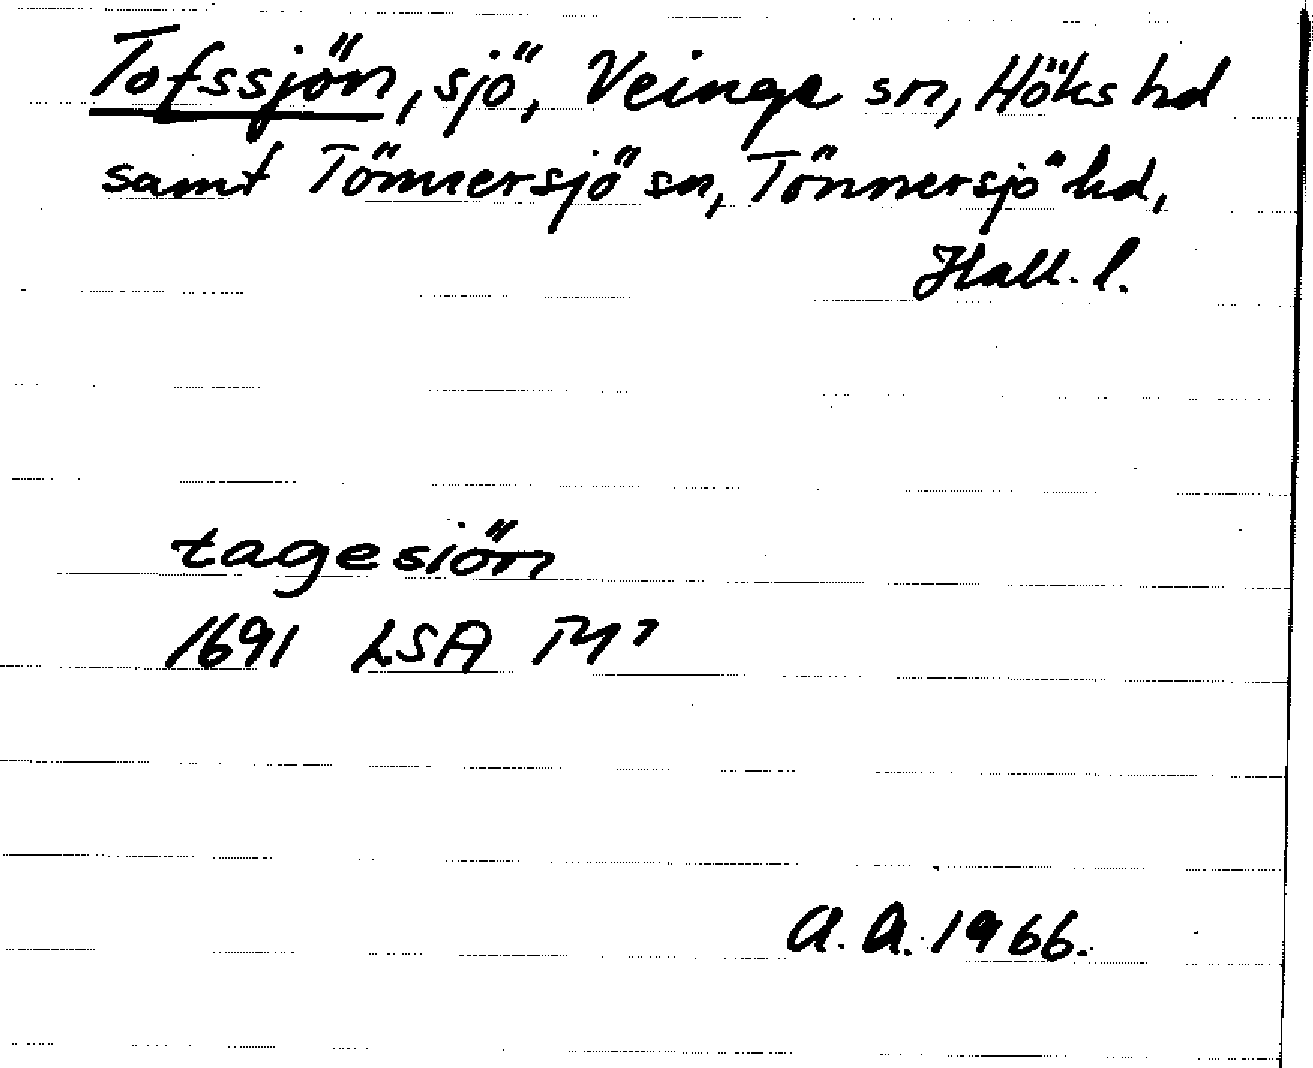 Tofssjön, sjö, Veinge sn, Höks hd
samt Tönnersjö sn, Tönnersjö hd,
Hall. l.
tagesiön
1691 LSA TY7
A. A. 1966.